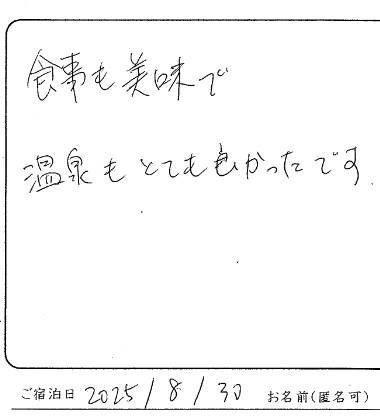 食事も美味で
温泉もとても良かったです
ご宿泊日 2025/8/30 お名前(匿名可)